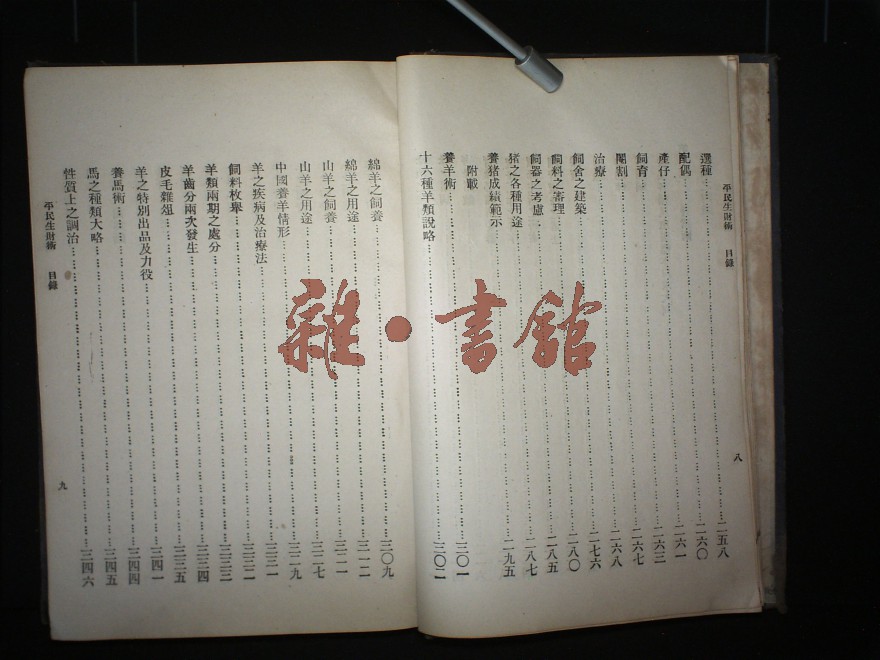 平民生財術 目錄 八
選種……二五八
配偶……二六〇
產仔……二六一
飼育……二六三
閹割……二六七
治療……二六八
飼舍之建築……二七六
飼料之審理……二八〇
飼器之考慮……二八五
猪之各種用途……二八七
養猪成績範示……二九五
附載
養羊術……三〇一
十六種羊類說略……三〇二
綿羊之飼養……三〇九
綿羊之用途……三一二
山羊之飼養……
山羊之用途……三二七
中國養羊情形……三二九
羊之疾病及治療法……三三一
飼料枚舉……三三二
羊類兩期之處分……三三三
羊齒分兩次發生……三三四
皮毛雜俎……三三五
羊之特別出品及力役……三四一
養馬術……三四四
馬之種類大略……三四五
性質上之調治……三四六
平民生財術 目錄 九
雜·書館